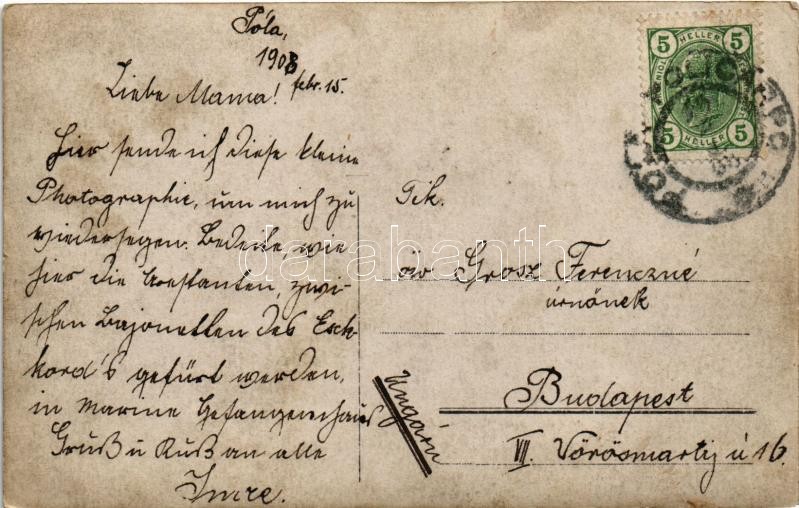 Póla,
1908
febr. 15.
Liebe Mama!
Hier sende ich diese kleine
Photographie, um mich zu
wiedersegen. Bedeite, wie
hier die Arestanten, zwi-
schen Bajonetten des Esk-
kord's gefürt werden,
in Marine Gefangenenhaus
Gruß u Kuß an alle
Imre.
5 HELLER 5
5 HELLER 5
Tik.
öv Grosz Ferenczné
úrnőnek
Budapest
VII. Vörösmartij ú 16.
Ungarn
darabanth